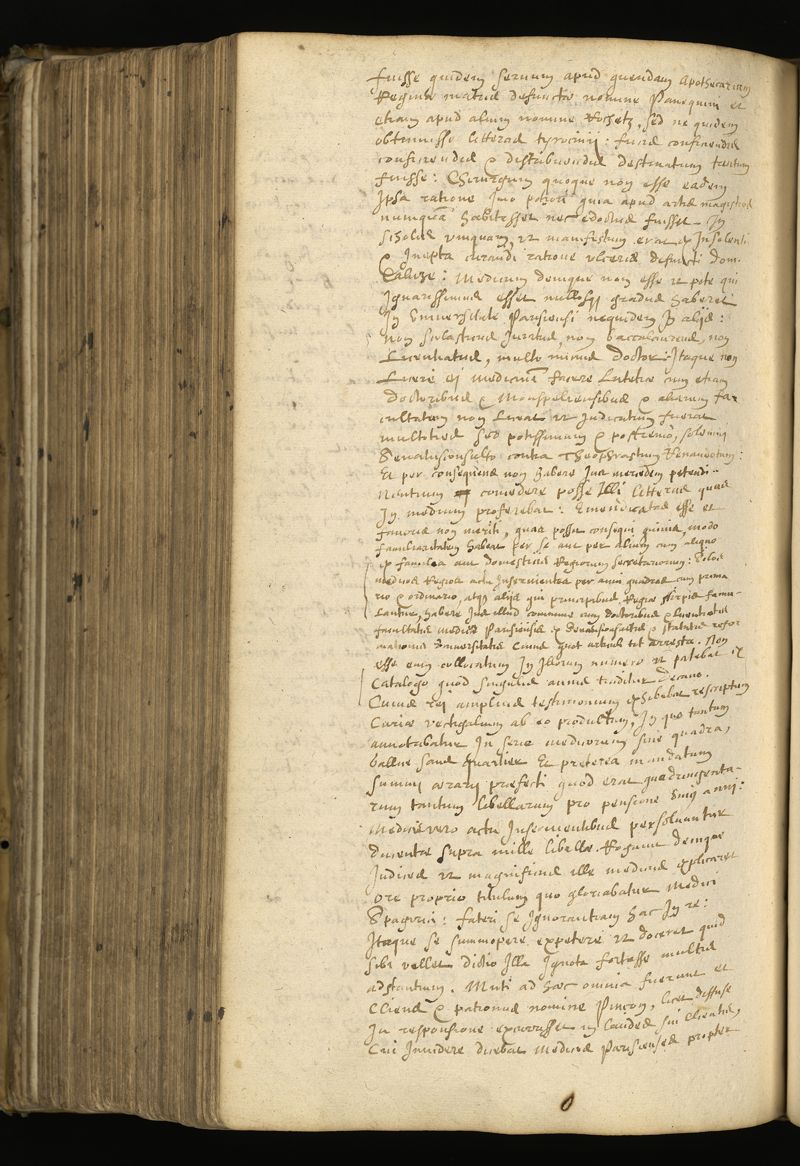 fuisse quidem servum apud quendam Apothecarium
Reginæ matris defunctæ nomine Panequin et
etiam apud alium nomine Rosetz, sed ne quidem
obtinuisse litteras tyrocinij: fucis
conficiendis & distribuendis destinatum tantum
fuisse: Chirurgum quoque non esse eadem
ipsa ratione imo potiori quia apud artis magistros
nunquam habitasset nec edoctus fuisset in
scholis unquam, ut manifestum erat ex insolenti
& inepta curandi ratione ulceris defuncti dom.
: Medicum denique non esse ut pote qui
ignarissimus esset nullosq gradus haberet
in Universitate Parisiensi nequidem in alijs:
non scolasticus Juratus, non baccalaureus, non
Licentiatus, multo minus doctor: Itaque non
Licere ei medicinã facere Lutetiæ cum etiam
doctoribus & Monspeliensibus & aliarum fa-
cultatum non Liceat ut judicatum fuerat
multoties sed potissimum & postremo, solemni
Senatusconsulto contra Theophrastum Renaudotum:
Et per consequens non habere jus mercedem petendi
Neutrum competere posse Illi litteras quas
in medium proferebat: Emendicatas esse et
favoris non meriti, quas possit consequi quivis, modo
familiaritatem habeat per se aut per alium cum aliquo
ex famulis aut domesticis Regiorum secretariorum: Solos
medicos Regios actu Inservientes per anni quadras cum prima
rio & ordinario, atq alijs qui principibus Regiæ stirpis famu-
lantur, habere Jus illud commune cum doctoribus & licentiatis
facultatis medicæ Parisiensis ex Senatusconsultis & statutis refor
mationis Universitatis Cuius quot articuli tot arresta. Non
esse eum collocatum In Illorum numero ut patebat ex
Catalogo quod singulis annis traditur Decano.
Cuius rei amplius testimonium exhibebat rescriptum
Curiæ vectigalium ab eo productum, In quo tantum
annotabatur In serie medicorum sine quadra,
gallice sans quartier Et preterea mandatum
summi ærarij præfecti quod erat quadringenta-
rum tantum libellarum pro pensione unius anni:
Medicis vero actu Inservientibus persolvuntur
ducentæ supra mille libellæ. Rogavit denique
Judices ut magnificus ille medicus explicaret
ore proprio titulum quo gloriabatur Medici
Spagirici: fateri se Ignorantiam hac In re:
Itaque se summopere expetere ut doceret quid
sibi vellet dictio Illa Ignota fortasse multis
adstantium. Muti ad hæc omnia fuerunt et
Cliens & patronus nomine Pinçon, licet diffuse
In responsione excurrisset in laudes sui clientis,
Cui Invidere dicebat medicos Parisienses propter